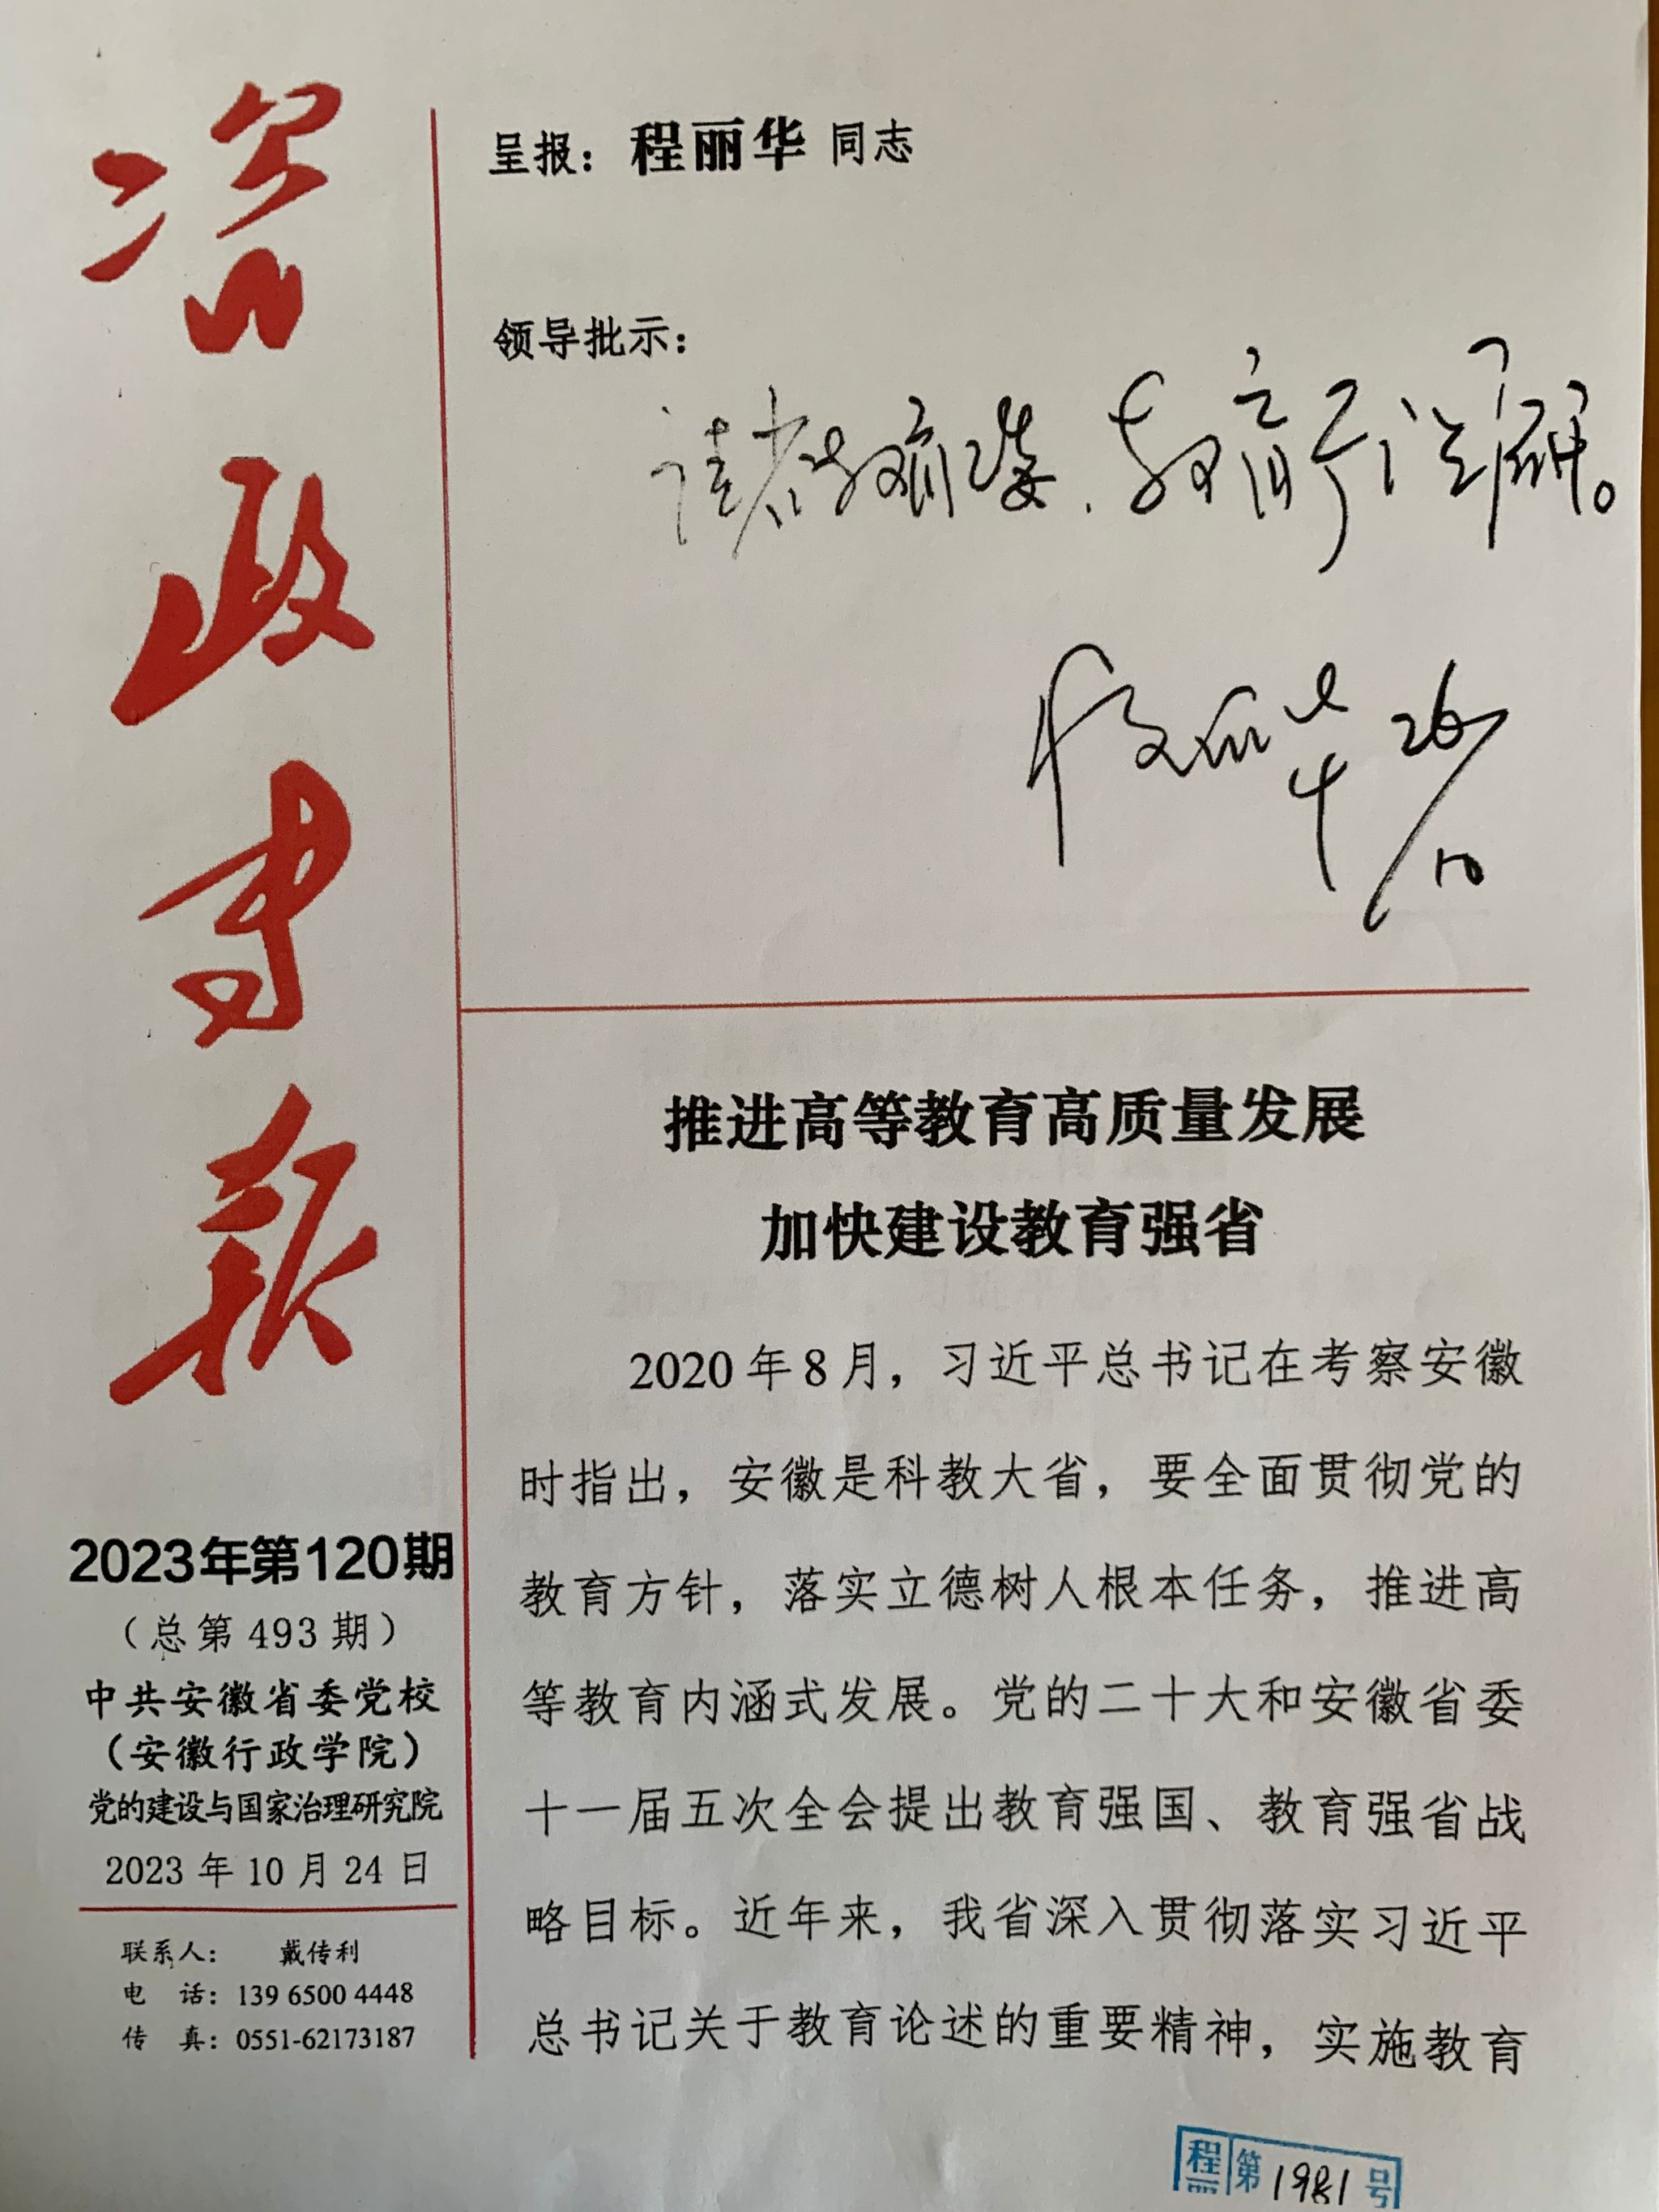 咨政专报
2023年第120期
（总第493期）
中共安徽省委党校
（安徽行政学院）
党的建设与国家治理研究院
2023年10月24日
联系人： 戴传利
电 话：139 6500 4448
传 真：0551-62173187
呈报：程丽华 同志
领导批示：
请省教育工委、教育厅阅研。
程丽华 26/10
推进高等教育高质量发展
加快建设教育强省
2020年8月，习近平总书记在考察安徽
时指出，安徽是科教大省，要全面贯彻党的
教育方针，落实立德树人根本任务，推进高
等教育内涵式发展。党的二十大和安徽省委
十一届五次全会提出教育强国、教育强省战
略目标。近年来，我省深入贯彻落实习近平
总书记关于教育论述的重要精神，实施教育
程 第1981号